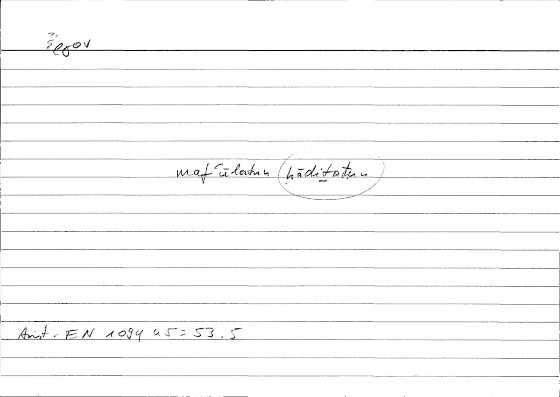 ἔργον
mafʿūlatun ḥādiṯatun
Arist. EN 1094 a5 = 53.5